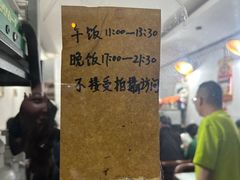 午饭11:00—13:30
晚饭17:00—21:30
不接受拍摄访问